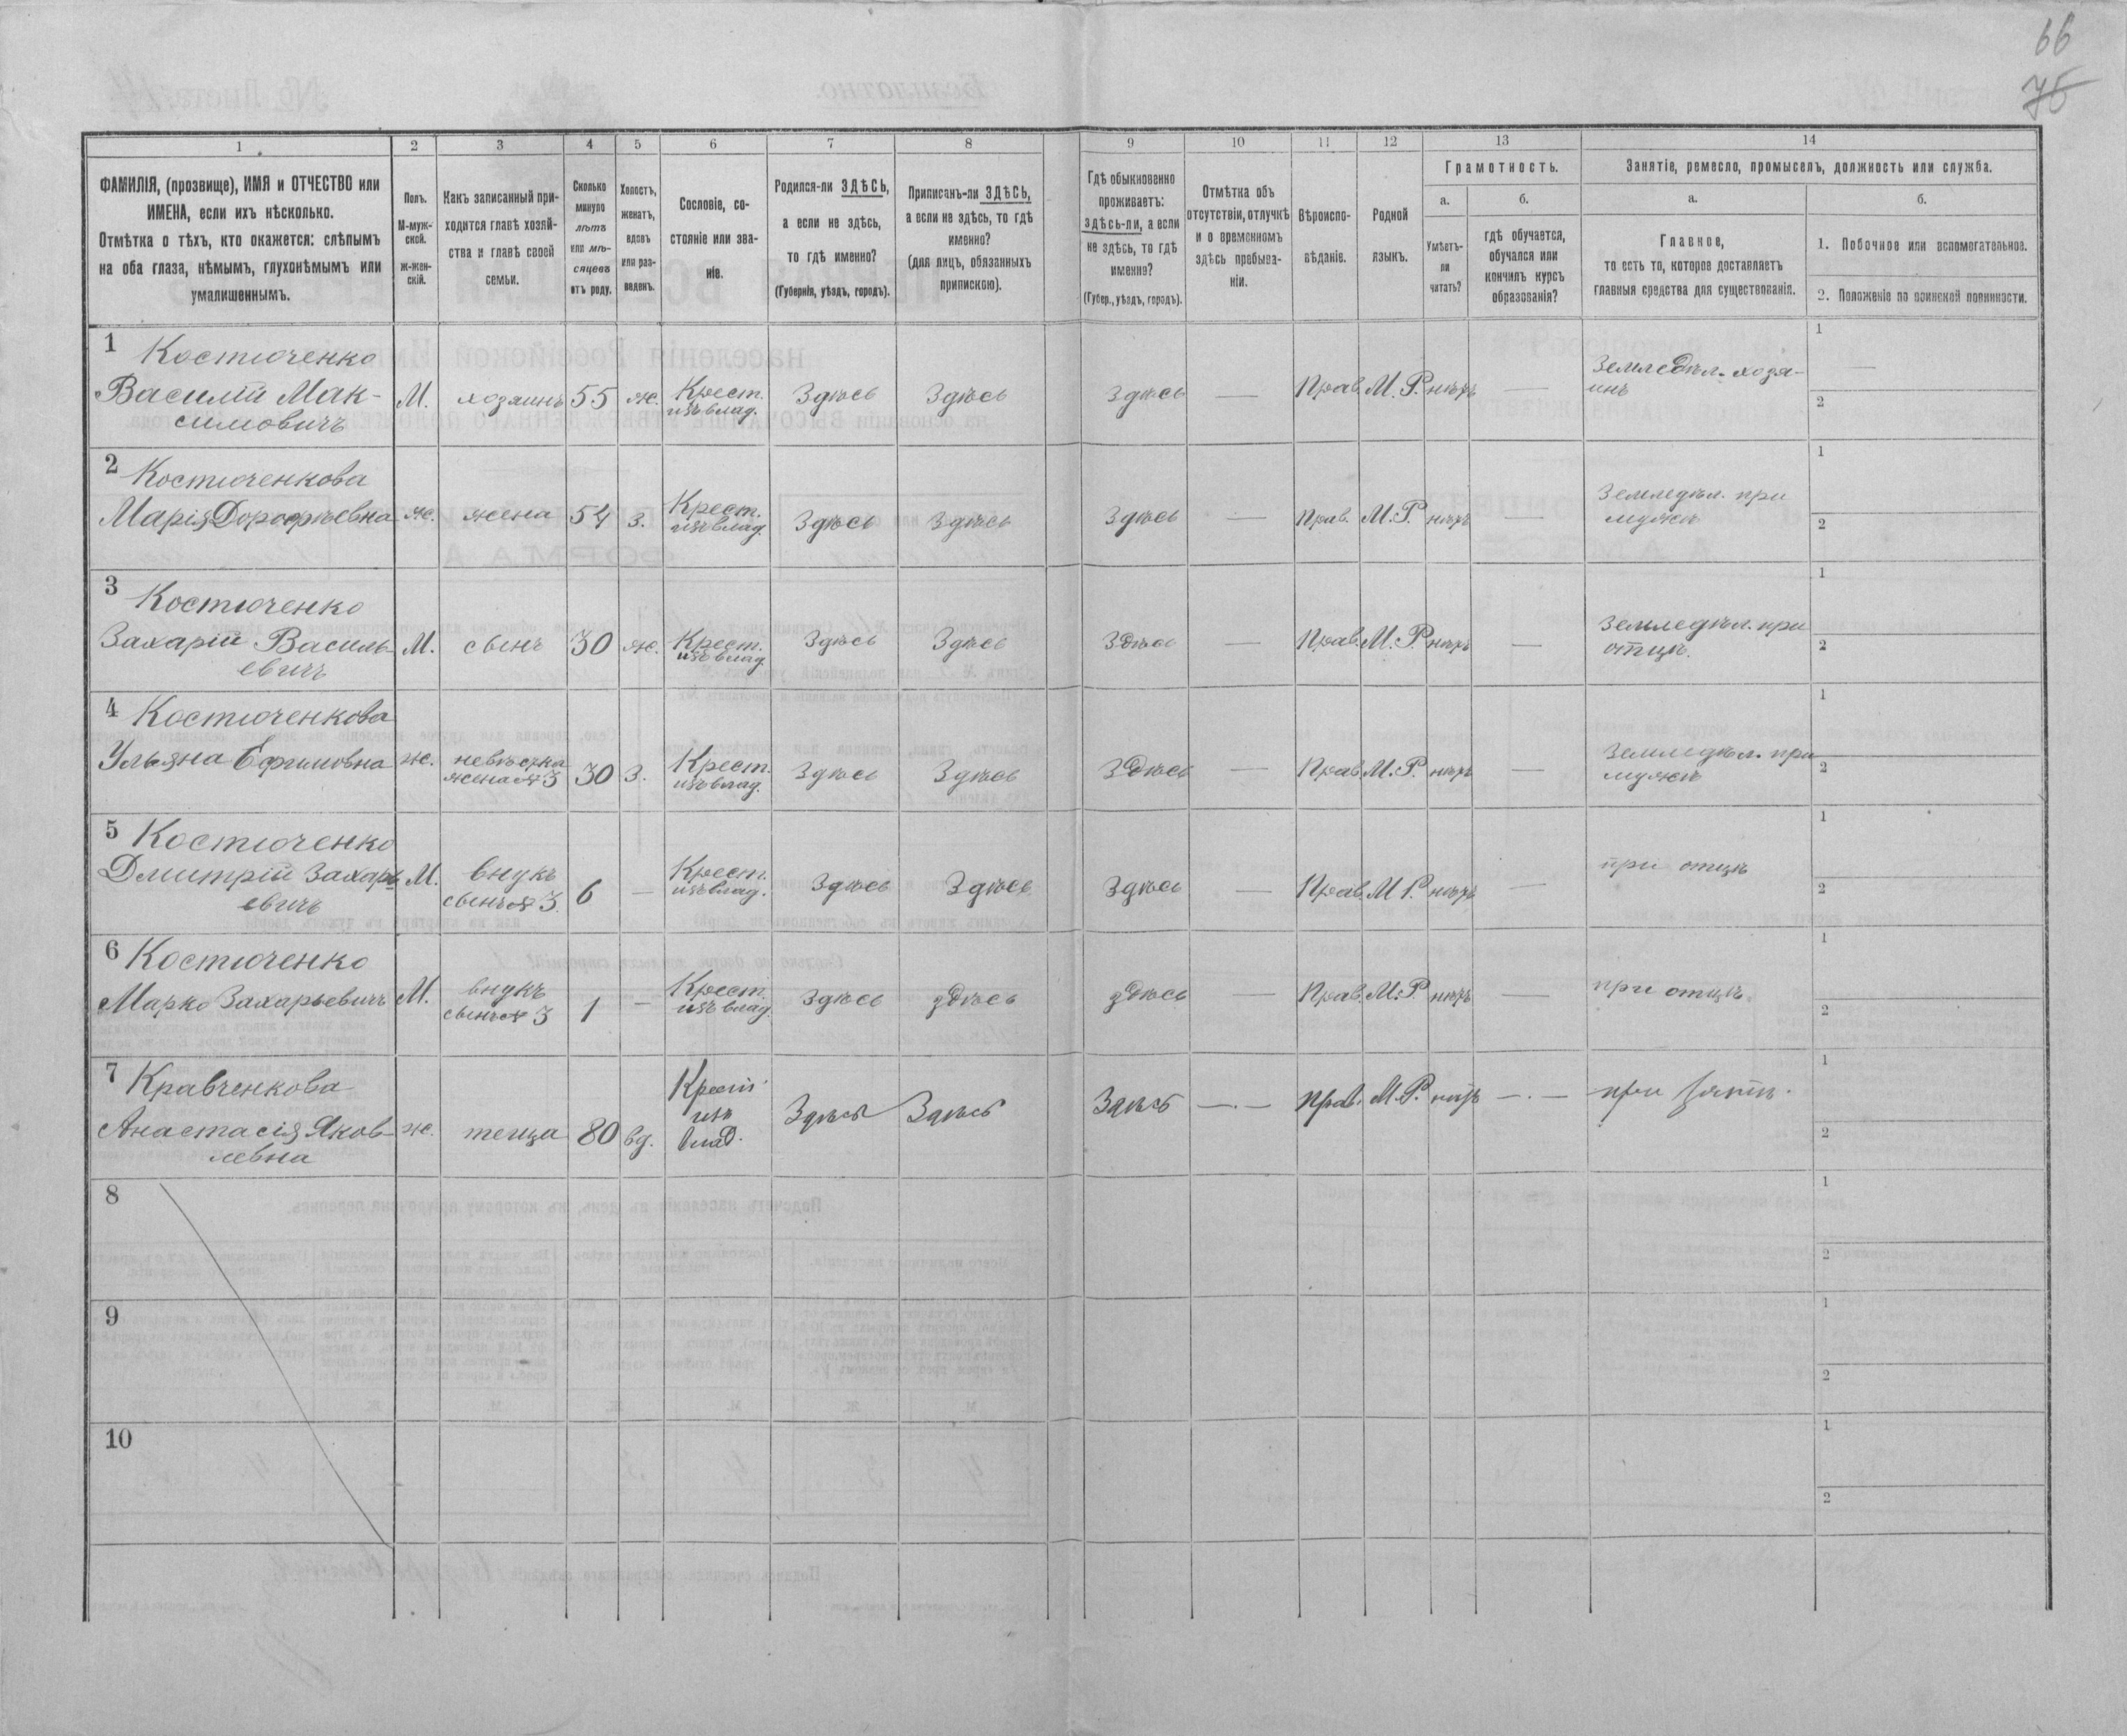 66
75
1 2 3 4 5 6 7 8 9 10 11 12 13 14
ФАМИЛІЯ, (прозвище), ИМЯ и ОТЧЕСТВО или
ИМЕНА, если ихъ нѣсколько.
Отмѣтка о тѣхъ, кто окажется: слѣпымъ
на оба глаза, нѣмымъ, глухонѣмымъ или
умалишеннымъ.
Полъ.
М-муж-
ской.
ж-жен-
скій.
Какъ записанный при-
ходится главѣ хозяй-
ства и главѣ своей
семьи.
Сколько
минуло
лѣтъ
или мѣ-
сяцевъ
отъ роду.
Холостъ,
женатъ,
вдовъ
или раз-
веденъ.
Сословіе, со-
стояніе или зва-
ніе.
Родился-ли ЗДѢСЬ,
а если не здѣсь,
то гдѣ именно?
(Губернія, уѣздъ, городъ).
Приписанъ-ли ЗДѢСЬ,
а если не здѣсь, то гдѣ
именно?
(для лицъ, обязанныхъ
припискою).
Гдѣ обыкновенно
проживаетъ:
здѣсь-ли, а если
не здѣсь, то гдѣ
именно?
(Губер., уѣздъ, городъ).
Отмѣтка объ
отсутствіи, отлучкѣ
и о временномъ
здѣсь пребыва-
ніи.
Вѣроиспо-
вѣданіе.
Родной
языкъ.
Грамотность.
а.
Умѣетъ-
ли
читать?
б.
гдѣ обучается,
обучался или
кончилъ курсъ
образованія?
Занятіе, ремесло, промыселъ, должность или служба.
а.
Главное,
то есть то, которое доставляетъ
главныя средства для существованія.
б.
1. Побочное или вспомогательное.
2. Положеніе по воинской повинности.
1 Костюченко
Василій Мак-
симовичъ
М. хозяинъ 55 ж. Крест.
изъ влад.
Здѣсь Здѣсь Здѣсь — Прав. М.Р. нѣтъ —
Земледѣл. хозя-
инъ
1 —
2
2 Костюченкова
Марія Дорофѣевна
ж. жена 54 з. Крест.
изъ влад.
Здѣсь Здѣсь Здѣсь — Прав. М.Р. нѣтъ —
Земледѣл. при
мужѣ
1
2
3 Костюченко
Захарій Василь-
евичъ
М. сынъ 30 ж. Крест.
изъ влад.
Здѣсь Здѣсь Здѣсь — Прав. М.Р. нѣтъ —
Земледѣл. при
отцѣ.
1
2
4 Костюченкова
Ульяна Ефимовна
ж. невѣстка
жена № 3
30 з. Крест.
изъ влад.
Здѣсь Здѣсь Здѣсь — Прав. М.Р. нѣтъ —
Земледѣл. при
мужѣ
1
2
5 Костюченко
Дмитрій Захарь-
евичъ
М. внукъ
сынъ № 3.
6 — Крест.
изъ влад.
Здѣсь Здѣсь Здѣсь — Прав. М.Р. нѣтъ —
при отцѣ
1
2
6 Костюченко
Марко Захарьевичъ
М. внукъ
сынъ № 3
1 — Крест.
изъ влад.
Здѣсь здѣсь здѣсь — Прав. М.Р. нѣтъ —
при отцѣ.
1
2
7 Кравченкова
Анастасія Яков-
левна
ж. теща 80 вд. Крест.
изъ
влад.
Здѣсь Здѣсь Здѣсь —.— Прав. М.Р. нѣтъ —.—
при зятѣ.
1
2
8
1
2
9
1
2
10
1
2